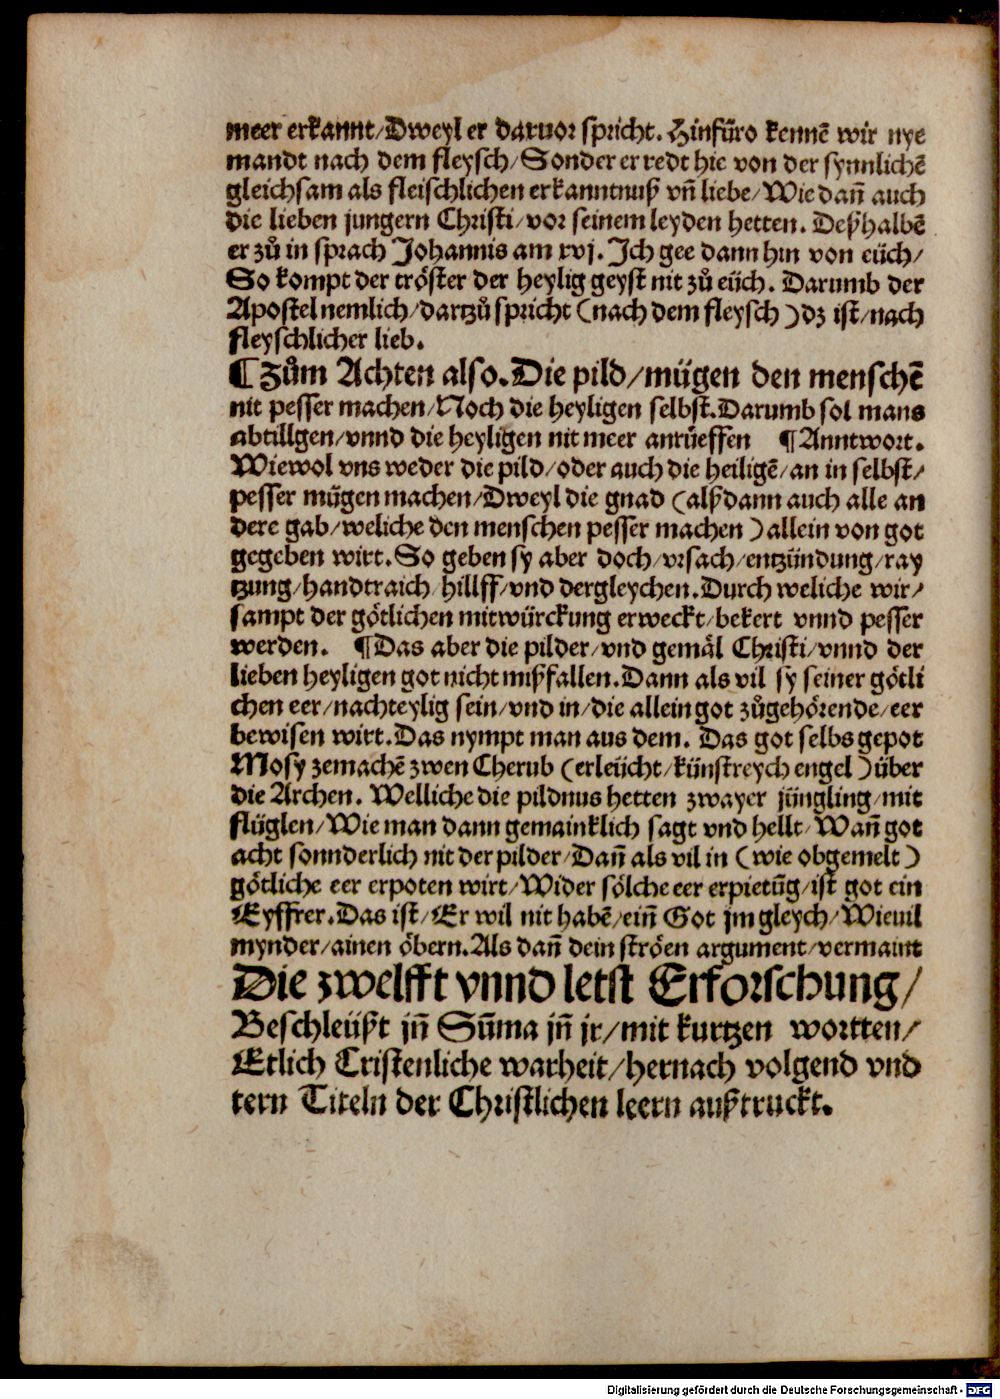 meer erkannt/Dweyl er daruor spricht. Hinfůro kennē wir nye
mandt nach dem fleysch/Sonder er redt hie von der synnlichē
gleichsam als fleischlichen erkanntnuß vn̄ liebe/Wie dañ auch
die lieben jungern Christi/vor seinem leyden hetten. Deßhalbē
er zů in sprach Johannis am xvj. Ich gee dann hin von eüch/
So kompt der tröster der heylig geyst nit zů eüch. Darumb der
Apostel nemlich/dartzů spricht (nach dem fleysch)dz ist/nach
fleyschlicher lieb.
¶Zům Achten also.Die pild/mügen den menschē
nit pesser machen/Noch die heyligen selbst.Darumb sol mans
abtillgen/vnnd die heyligen nit meer anrüeffen ¶Anntwort.
Wiewol vns weder die pild/oder auch die heiligē/an in selbst/
pesser mügen machen/Dweyl die gnad (alßdann auch alle an
dere gab/weliche den menschen pesser machen)allein von got
gegeben wirt.So geben sy aber doch/vrsach/entzündung/ray
tzung/handtraich/hillff/vnd dergleychen.Durch weliche wir/
sampt der götlichen mitwürckung erweckt/bekert vnnd pesser
werden. ¶Das aber die pilder/vnd gemäl Christi/vnnd der
lieben heyligen got nicht mißfallen.Dann als vil sy seiner götli
chen eer/nachteylig sein/vnd in/die allein got zůgehörende/eer
bewisen wirt.Das nympt man aus dem. Das got selbs gepot
Mosy zemachē zwen Cherub (erleücht/künstreych engel)über
die Archen. Welliche die pildnus hetten zwayer jüngling/mit
flüglen/Wie man dann gemainklich sagt vnd hellt/Wañ got
acht sonnderlich nit der pilder/Dañ als vil in (wie obgemelt)
götliche eer erpoten wirt/Wider sölche eer erpietūg/ist got ein
Eyffrer.Das ist/Er wil nit habē/eiñ Got jm gleych/Wieuil
mynder/ainen öbern.Als dañ dein ströen argument/vermaint
Die zwelfft vnnd letst Erforschung/
Beschleüßt jñ Sūma jñ jr/mit kurtzen wortten/
Etlich Cristenliche warheit/hernach volgend vnd
tern Titeln der Christlichen leern außtruckt.
Digitalisierung gefördert durch die Deutsche Forschungsgemeinschaft - DFG